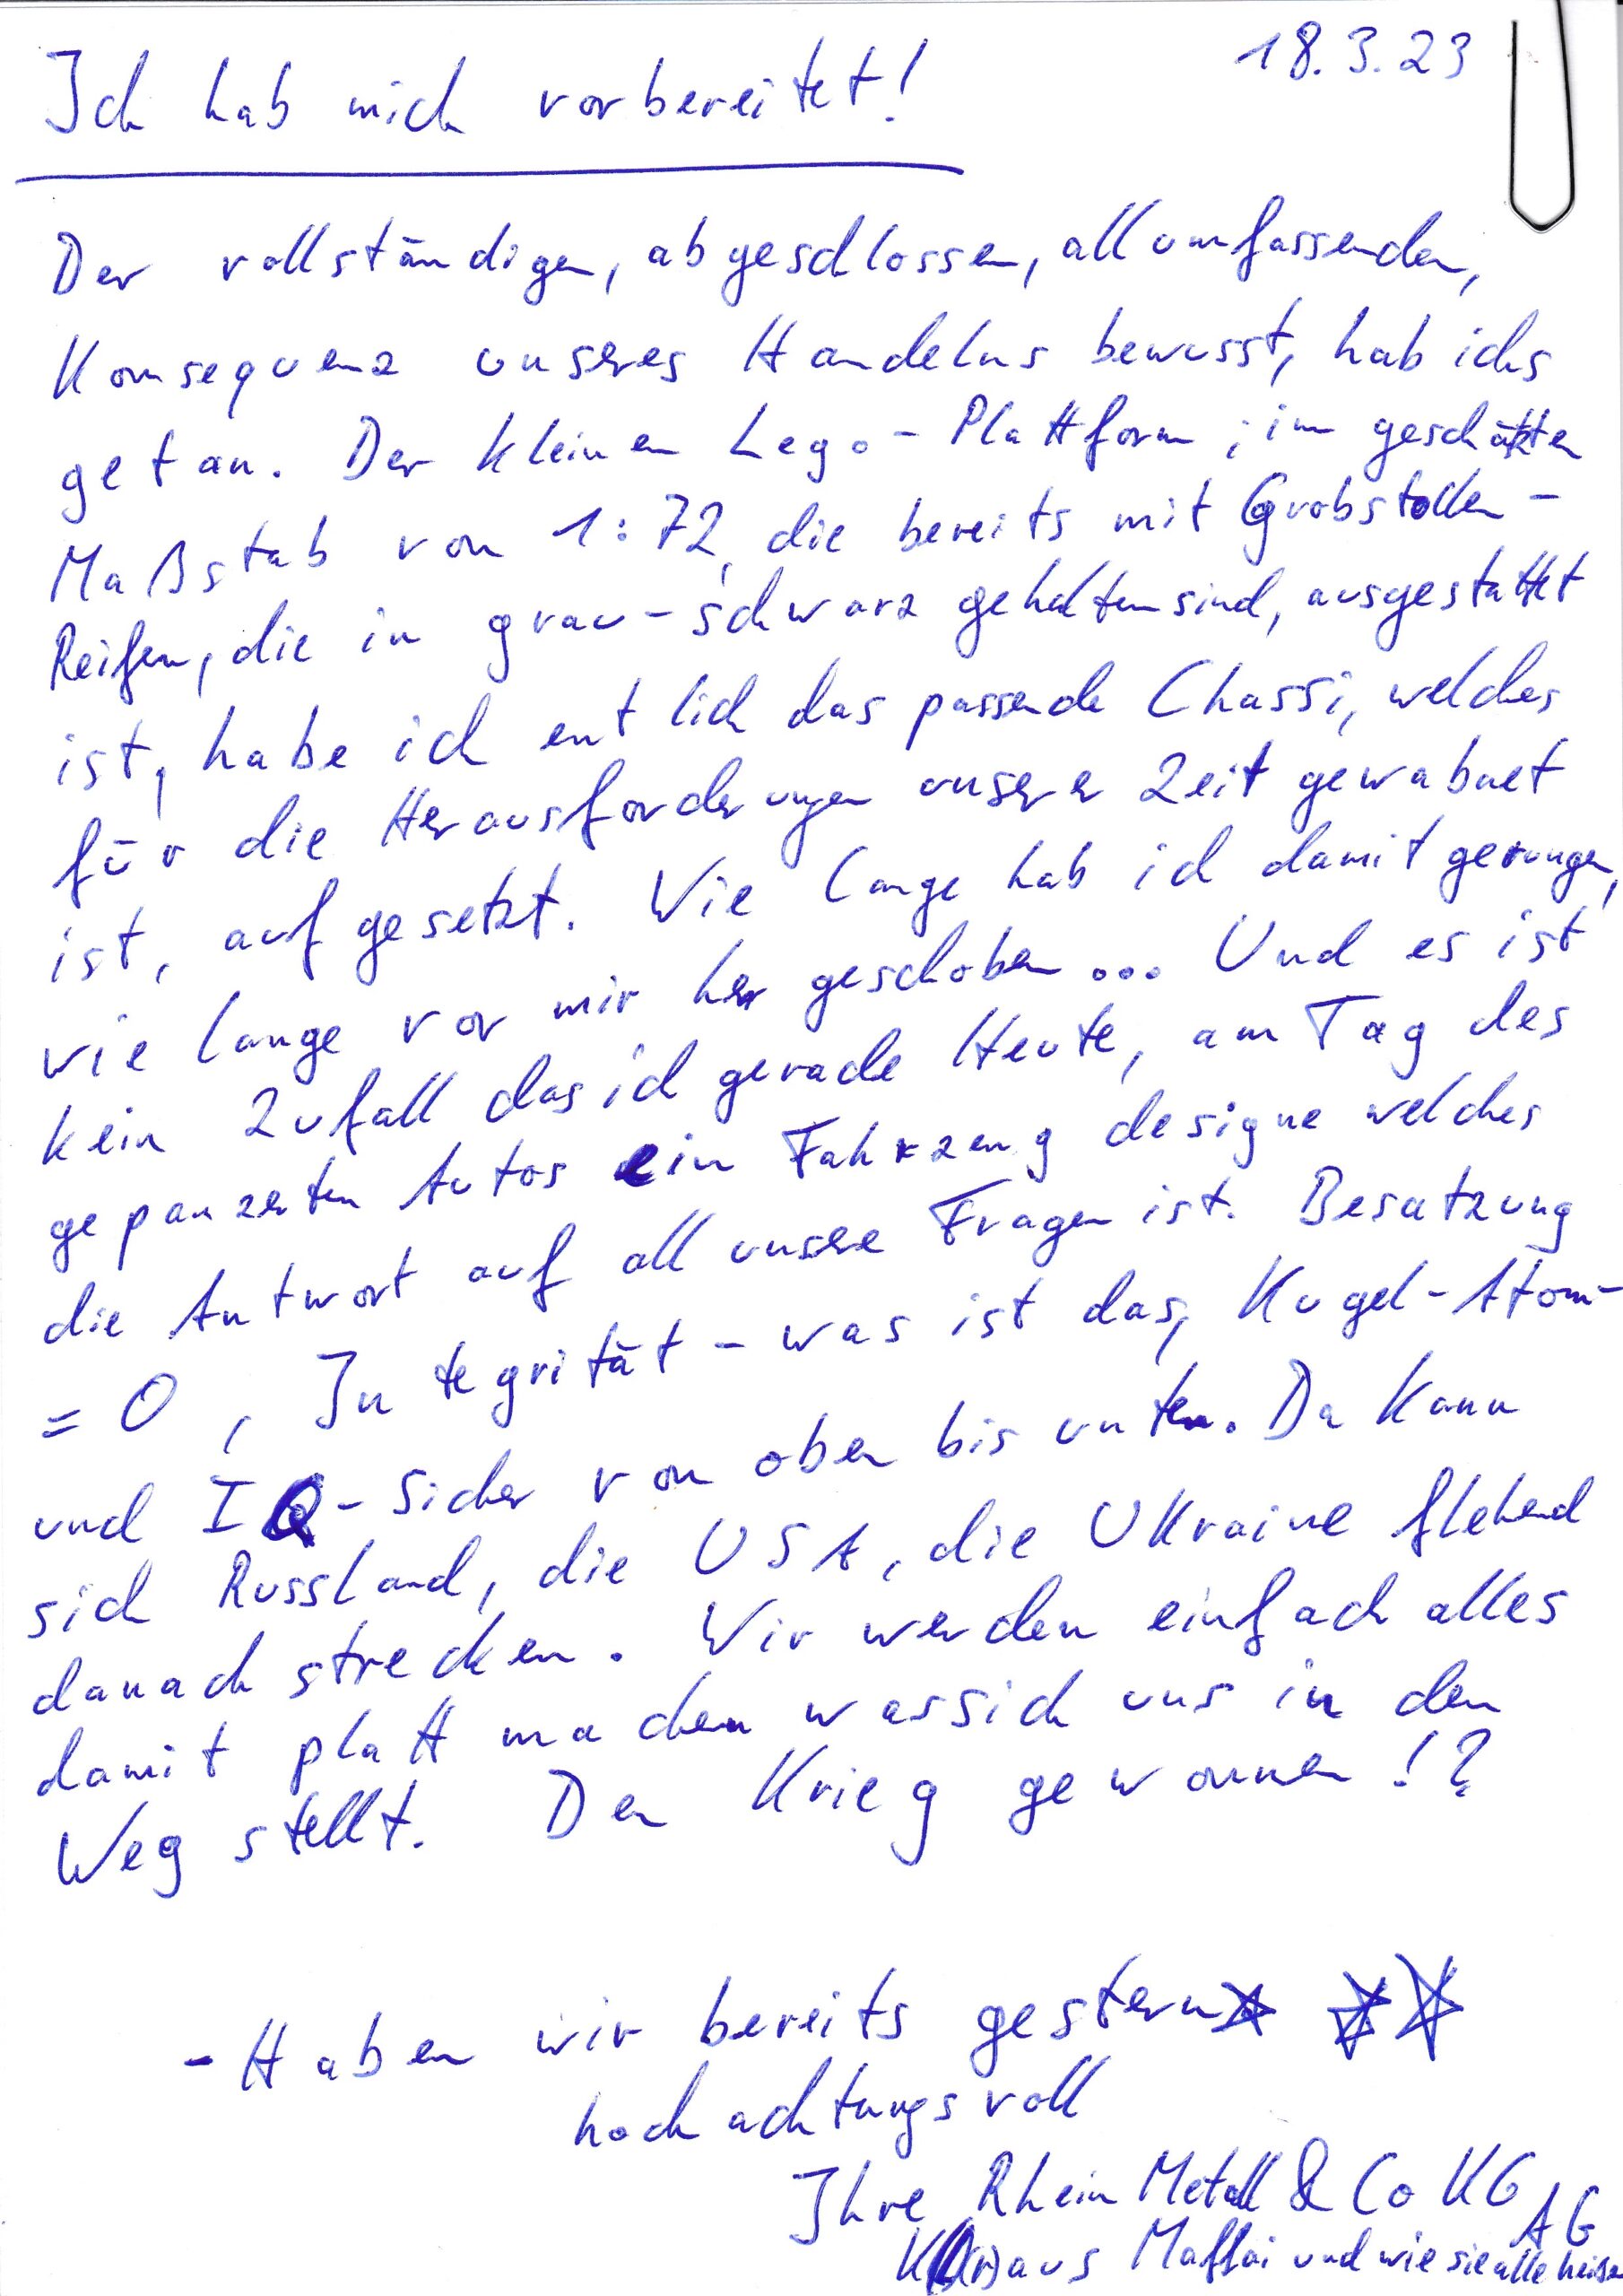 18.3.23
Ich hab mich vorbereitet!
Der vollständigen, abgeschlossen, allumfassenden,
Konsequenz unseres Handelns bewusst, hab ichs
getan. Der kleinen Lego-Plattform, im geschätzten
Maßstab von 1:72, die bereits mit Grobstollen-
Reifen, die in grau-schwarz gehalten sind, ausgestattet
ist, habe ich entlich das passende Chassi, welches
für die Herausforderungen unserer Zeit gewabnet
ist, aufgesetzt. Wie lange hab ich damit gerungen,
wie lange vor mir her geschoben... Und es ist
kein Zufall das ich gerade Heute, am Tag des
gepanzerten Autos ein Fahrzeug designe welches
die Antwort auf all unsere Fragen ist. Besatzung
= 0, Integrität - was ist das, Kugel-Atom-
und IQ-Sicher von oben bis unten. Da kann
sich Russland, die USA, die Ukraine flehend
danach strecken. Wir werden einfach alles
damit platt machen was sich uns in den
Weg stellt. Den Krieg gewonnen!?
- Haben wir bereits gestern
hochachtungsvoll
Ihre Rhein Metall & Co KG AG
aus Maffai und wie sie alle heisen